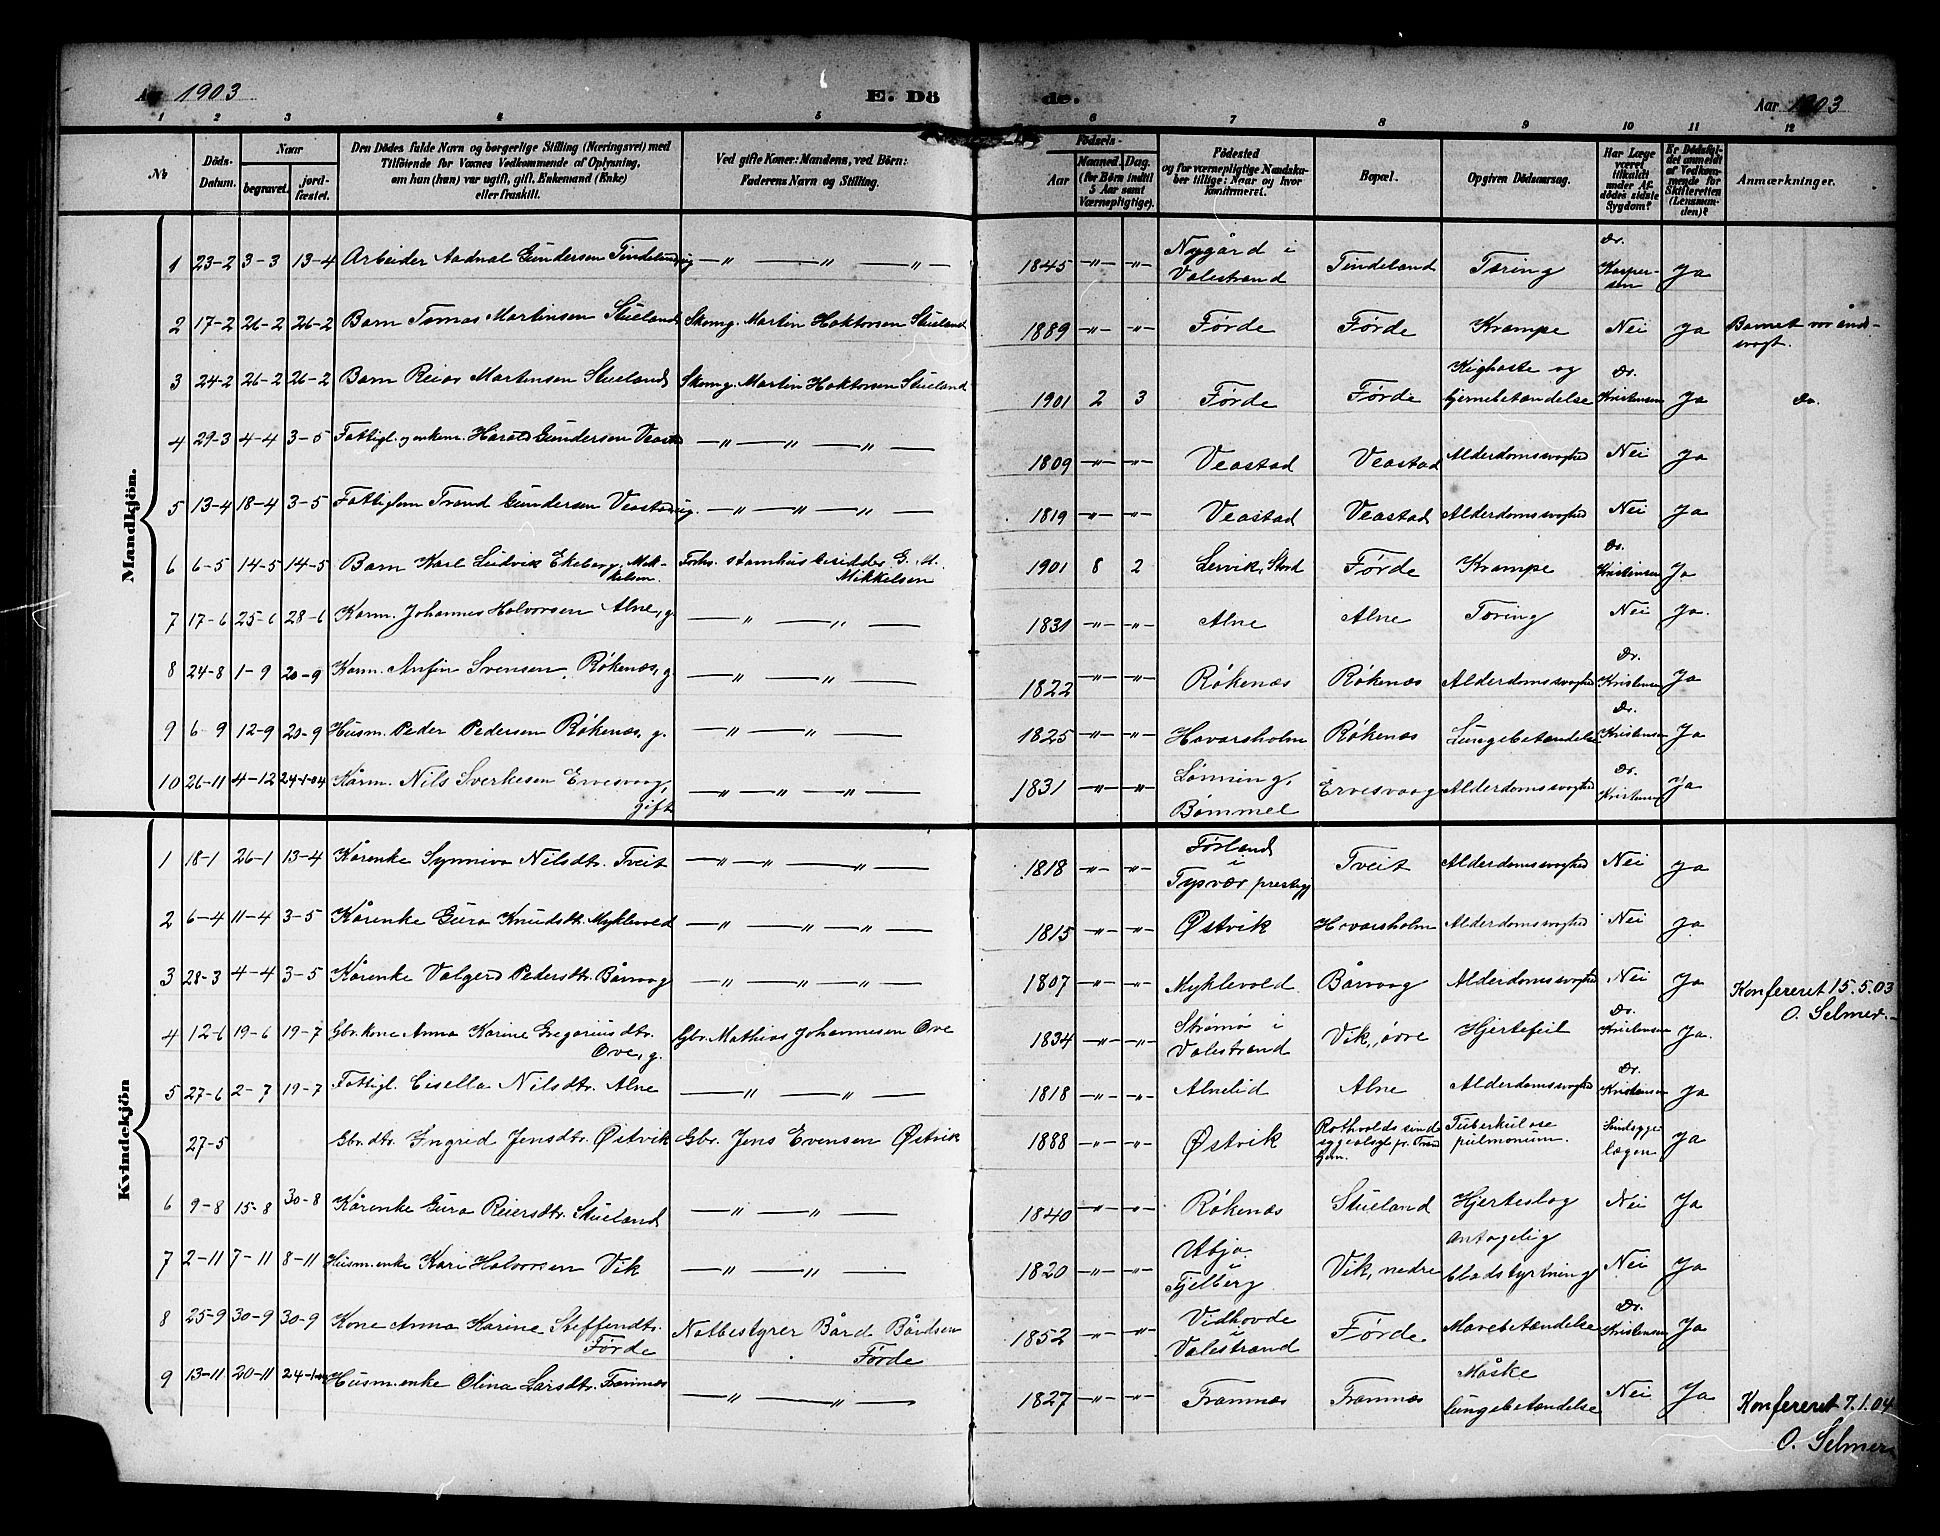 Aar 1903 E. Döde. Aar 1903
1 2 3 4 5 6 7 8 9 10 11 12
No
Döds-Datum.
Naar
begravet.
jord-fæstet.
Den Dödes fulde Navn og borgerlige Stilling (Næringsvei) med
Tilföiende for Voxnes Vedkommende af Oplysning,
om han (hun) var ugift, gift, Enkemand (Enke)
eller fraskilt.
Ved gifte Koner: Mandens, ved Börn:
Faderens Navn og Stilling.
Födsels-
Aar
Maaned. Dag.
(for Börn indtil
5 Aar samt
Værnepligtige).
Födested
og for værnepligtige Mandska-
ber tillige: Naar og hvor
konfirmeret.
Bopæl.
Opgiven Dödsaarsag.
Har Læge
været
tilkaldt
under Af-
dödes sidste
Sygdom?
Er Dödsfal-
det anmeldt
af Vedkom-
mende for
Skifteretten
(Lensman-
den)?
Anmærkninger.
Mandkjön.
1 23-2 3-3 13-4 Arbeider Aadnal Gundersen Tindeland ug — " — " — " — 1845 — " — — " — Nygård i Valestrand Tindeland Tæring Dr. Kaspersen Ja
2 17-2 26-2 26-2 Barn Tomas Martinsen Stueland Skomg. Martin Haktorsen Stueland 1889 — " — — " — Førde Førde Krampe Nei Ja Barnet var åndsvagt.
3 24-2 26-2 26-2 Barn Reias Martinsen Stueland Skomg. Martin Haktorsen Stueland 1901 2 3 Førde Førde Kighoste og hjernebetændelse Dr. Kristensen Ja Do.
4 29-3 4-4 3-5 Fattigl. og enkem. Harald Gundersen Veastad — " — " — " — 1809 — " — — " — Veastad Veastad Alderdomssvaghed Nei Ja
5 13-4 18-4 3-5 Fattiglem Trond Gundersen Veastad ug. — " — " — " — 1819 — " — — " — Veastad Veastad Alderdomssvaghed Nei Ja
6 6-5 14-5 14-5 Barn Karl Ludvik Ekeberg Mikkelsen Forh. stamhusbesidder G. M. Mikkelsen 1901 8 2 Lervik, Stord Førde Krampe Dr. Kristensen Ja
7 17-6 25-6 28-6 Kårm. Johannes Halvorsen Alne, g — " — " — 1831 — " — — " — Alne Alne Tæring Nei Ja.
8 24-8 1-9 20-9 Kårm. Anfin Svensen Røkenæs, g — " — " — 1822 — " — — " — Røkenæs Røkenæs Alderdomssvaghed Dr. Kristensen Ja
9 6-9 12-9 20-9 Husm. Peder Pedersen Røkenæs, g. — " — " — 1825 — " — — " — Hovarsholm Røkenæs Lungebetændelse Dr. Kristensen Ja
10 26-11 4-12 24-1-04 Kårm. Nils Sverkesen Ervesvaag, gift — " — " — " — 1831 — " — — " — Lønning, Bømmel Ervesvaag Alderdomssvaghed Dr. Kristensen Ja
Kvindekjön
1 18-1 26-1 13-4 Kårenke Synniva Nilsdtr. Tveit — " — " — " — 1818 — " — — " — Førland i Tysvær prestegj Tveit Alderdomssvaghed Nei Ja
2 6-4 11-4 3-5 Kårenke Guro Knudsdtr. Myklevold — " — " — " — 1815 — " — — " — Østvik Hovarsholm Alderdomssvaghed Nei Ja
3 28-3 4-4 3-5 Kårenke Valgerd Pedersdtr. Bårvaag — " — " — " — 1807 — " — — " — Myklevold Bårvaag Alderdomssvaghed Nei Ja Konfereret 15.5.03 O. Selmer.
4 12-6 19-6 19-7 Gbr.kone Anna Karine Gregoriusdtr. Ove, g. Gbr. Mathias Johannesen Ove 1834 — " — — " — Strømø i Valestrand Vik, øvre Hjertefeil Dr. Kristensen Ja.
5 27-6 2-7 19-7 Fattigl. Cisella Nilsdtr. Alne — " — " — 1818 — " — — " — Alnelid Alne Alderdomssvaghed Dr. Kristensen Ja
27-5 Gbr.dtr. Ingrid Jensdtr. Østvik Gbr. Jens Evensen Østvik 1888 — " — — " — Østvik Rothvolds sindssygeasyl pr. Trondhjem. Tuberkulose pulmonum. Sindssygelægen Ja
6 9-8 15-8 30-8 Kårenke Guro Reiersdtr. Stueland — " — " — 1840 — " — — " — Røkenæs Stueland Hjerteslag Nei Ja
7 2-11 7-11 8-11 Husm.enke Kari Halvorsen Vik — " — " — 1820 — " — — " — Ubjo i Fjelberg Vik, nedre antagelig blodstyrtning Nei Ja
8 25-9 30-9 30-9 Kone Anna Karine Steffendtr. Førde Notbestyrer Bård Bårdsen Førde 1852 — " — — " — Vidhovde i Valestrand Førde Mavebetændelse Dr. Kristensen Ja
9 13-11 20-11 24-1 Husm.enke Olina Larsdtr. Framnæs — " — " — 1827 — " — — " — Framnæs Framnæs Måske lungebetændelse Nei Ja Konfereret 7.1.04 O. Selmer